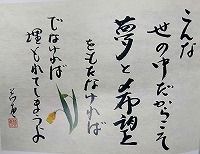 こんな
世の中だからこそ
夢と希望
をもたなければ
でなければ
埋もれてしまうよ